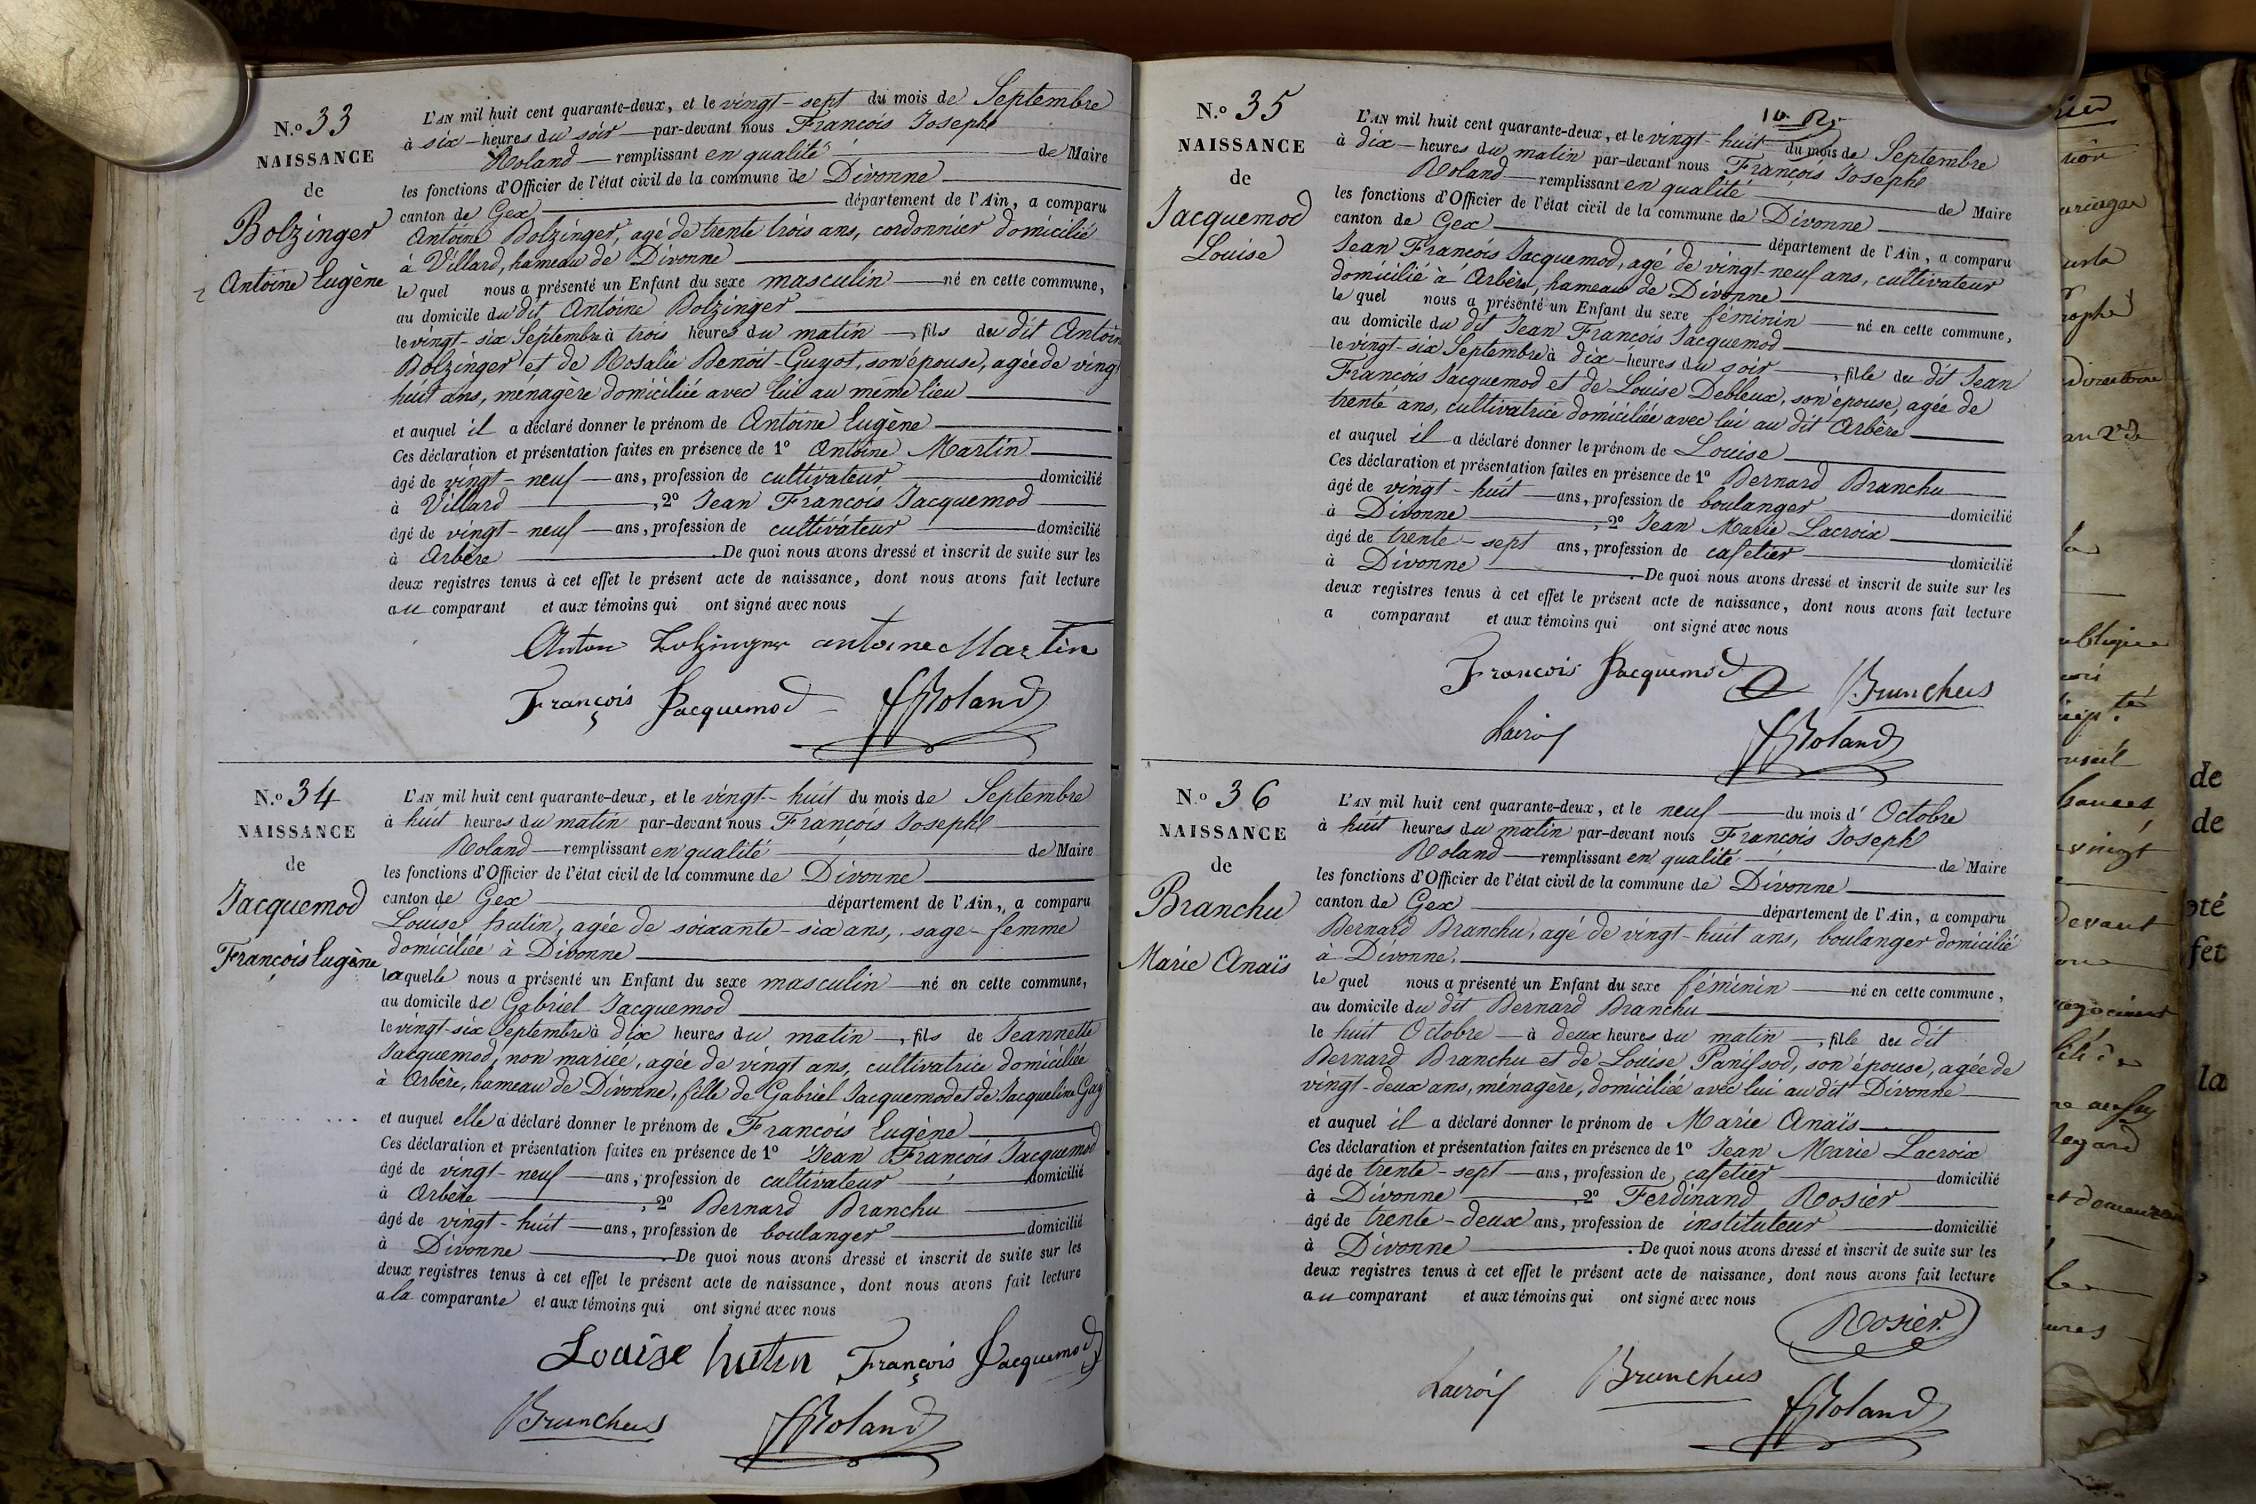 N.o 33
NAISSANCE
de
Bolzinger
Antoine Eugène
L'AN mil huit cent quarante-deux, et le vingt-sept du mois de Septembre
à six heures du soir par-devant nous François Joseph
Roland remplissant en qualité de Maire
les fonctions d'Officier de l'état civil de la commune de Divonne
canton de Gex département de l'Ain, a comparu
Antoine Bolzinger, agé de trente trois ans, cordonnier domicilié
à Villard, hameau de Divonne
lequel nous a présenté un Enfant du sexe masculin né en cette commune,
au domicile du dit Antoine Bolzinger
le vingt-six Septembre à trois heures du matin, fils du dit Antoine
Bolzinger et de Rosalie Benoit-Guyot, son épouse, agée de vingt
huit ans, ménagère domiciliée avec lui au même lieu
et auquel il a déclaré donner le prénom de Antoine Eugène
Ces déclaration et présentation faites en présence de 1º Antoine Martin
âgé de vingt-neuf ans, profession de cultivateur domicilié
à Villard, 2º Jean François Jacquemod
âgé de vingt-neuf ans, profession de cultivateur domicilié
à Arbère. De quoi nous avons dressé et inscrit de suite sur les
deux registres tenus à cet effet le présent acte de naissance, dont nous avons fait lecture
au comparant et aux témoins qui ont signé avec nous
Anton Bolzinger antoine Martin
François Jacquemod FJRoland
N.o 34
NAISSANCE
de
Jacquemod
François Eugène
L'AN mil huit cent quarante-deux, et le vingt-huit du mois de Septembre
à huit heures du matin par-devant nous François Joseph
Roland remplissant en qualité de Maire
les fonctions d'Officier de l'état civil de la commune de Divonne
canton de Gex département de l'Ain, a comparu
Louise hutin, agée de soixante-six ans, sage-femme
domiciliée à Divonne
laquelle nous a présenté un Enfant du sexe masculin né en cette commune,
au domicile de Gabriel Jacquemod
le vingt-six Septembre à dix heures du matin, fils de Jeannette
Jacquemod, non mariée, agée de vingt ans, cultivatrice domiciliée
à Arbère, hameau de Divonne, fille de Gabriel Jacquemod et de Jacqueline Gay
et auquel elle a déclaré donner le prénom de François Eugène
Ces déclaration et présentation faites en présence de 1º Jean François Jacquemod
âgé de vingt-neuf ans, profession de cultivateur domicilié
à Arbère, 2º Bernard Branchu
âgé de vingt-huit ans, profession de boulanger domicilié
à Divonne. De quoi nous avons dressé et inscrit de suite sur les
deux registres tenus à cet effet le présent acte de naissance, dont nous avons fait lecture
a la comparante et aux témoins qui ont signé avec nous
Louise hutin François Jacquemod
Brunchus FJRoland
N.o 35
NAISSANCE
de
Jacquemod
Louise
L'AN mil huit cent quarante-deux, et le vingt-huit du mois de Septembre
à dix heures du matin par-devant nous François Joseph
Roland remplissant en qualité de Maire
les fonctions d'Officier de l'état civil de la commune de Divonne
canton de Gex département de l'Ain, a comparu
Jean François Jacquemod, agé de vingt-neuf ans, cultivateur
domicilié à Arbère, hameau de Divonne
lequel nous a présenté un Enfant du sexe féminin né en cette commune,
au domicile du dit Jean François Jacquemod
le vingt-six Septembre à dix heures du soir, fille du dit Jean
François Jacquemod et de Louise Debleux, son épouse, agée de
trente ans, cultivatrice domiciliée avec lui au dit Arbère
et auquel il a déclaré donner le prénom de Louise
Ces déclaration et présentation faites en présence de 1º Bernard Branchu
âgé de vingt-huit ans, profession de boulanger domicilié
à Divonne, 2º Jean Marie Lacroix
âgé de trente-sept ans, profession de cafetier domicilié
à Divonne. De quoi nous avons dressé et inscrit de suite sur les
deux registres tenus à cet effet le présent acte de naissance, dont nous avons fait lecture
a comparant et aux témoins qui ont signé avec nous
François Jacquemod Brunchus
Lacroix FJRoland
N.o 36
NAISSANCE
de
Branchu
Marie Anaïs
L'AN mil huit cent quarante-deux, et le neuf du mois d'Octobre
à huit heures du matin par-devant nous François Joseph
Roland remplissant en qualité de Maire
les fonctions d'Officier de l'état civil de la commune de Divonne
canton de Gex département de l'Ain, a comparu
Bernard Branchu, agé de vingt-huit ans, boulanger domicilié
à Divonne.
lequel nous a présenté un Enfant du sexe féminin né en cette commune,
au domicile du dit Bernard Branchu
le huit Octobre à deux heures du matin, fille du dit
Bernard Branchu et de Louise Panissod, son épouse, agée de
vingt-deux ans, ménagère, domiciliée avec lui au dit Divonne
et auquel il a déclaré donner le prénom de Marie Anaïs
Ces déclaration et présentation faites en présence de 1º Jean Marie Lacroix
âgé de trente-sept ans, profession de cafetier domicilié
à Divonne, 2º Ferdinand Rosier
âgé de trente-deux ans, profession de instituteur domicilié
à Divonne. De quoi nous avons dressé et inscrit de suite sur les
deux registres tenus à cet effet le présent acte de naissance, dont nous avons fait lecture
au comparant et aux témoins qui ont signé avec nous
Rosier
Lacroix Brunchus
FJRoland
de
de
vingt
devant
la